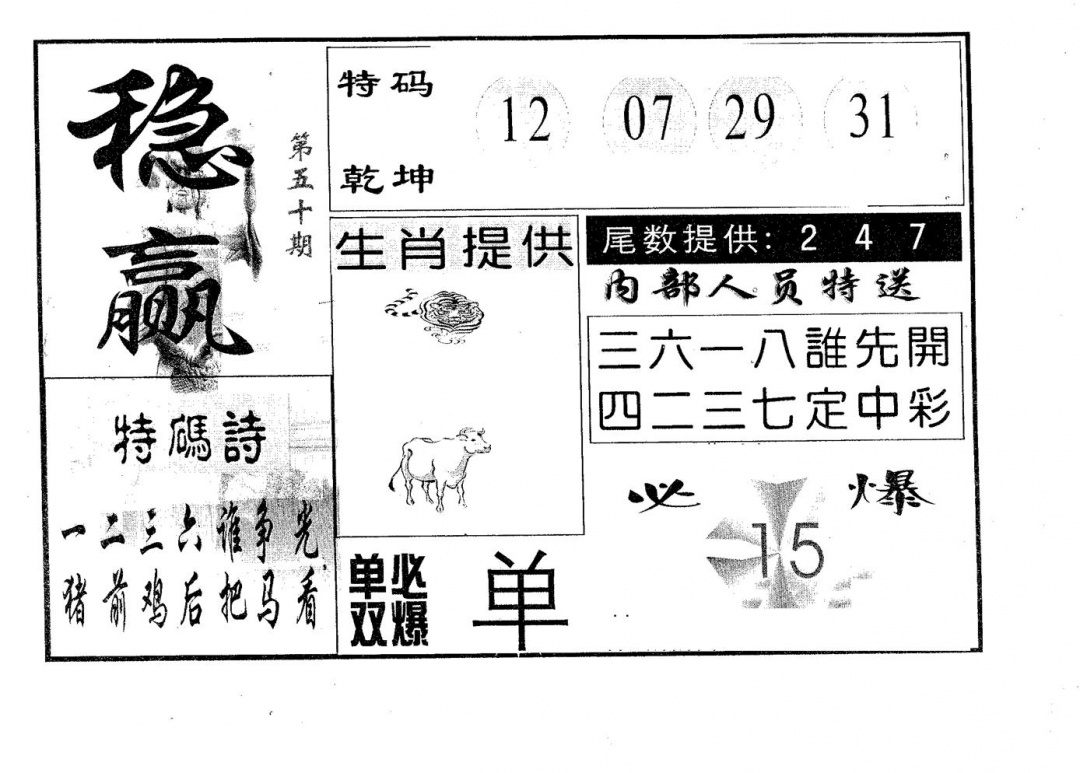 稳赢
第五十期
特码
乾坤
12 07 29 31
生肖提供
尾数提供: 2 4 7
内部人员特送
三六一八誰先開
四二三七定中彩
特碼詩
一二三六谁争光
猪前鸡后把马看
必爆
15
单双
必爆
单